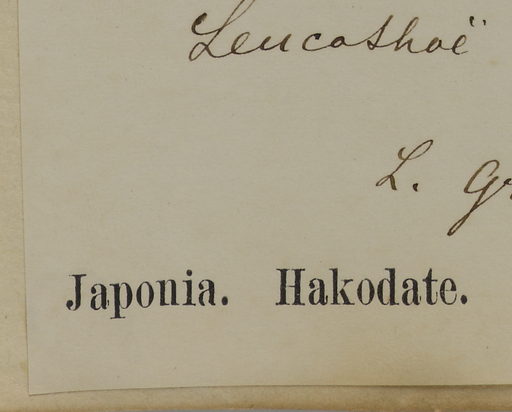 Leucothoë
L. Gr
Japonia. Hakodate.